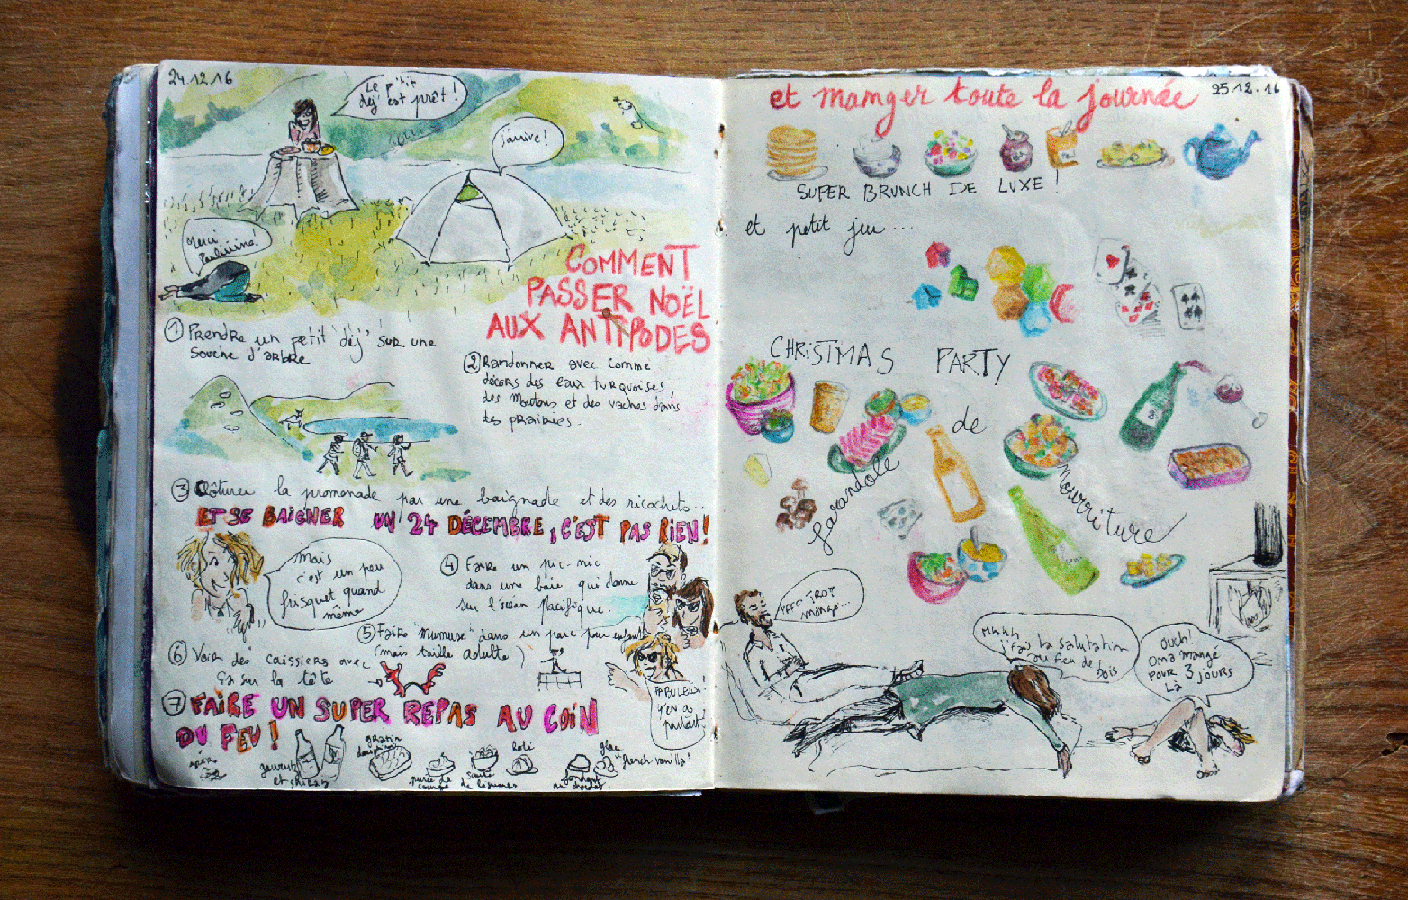 24.12.16
Le p'tit
dej' est prêt !
J'arrive !
Merci
COMMENT
PASSER NOËL
AUX ANTIPODES
① Prendre un petit déj' sur une
souche d'arbre
② Randonner avec comme
décors des eaux turquoises,
des moutons et des vaches dans
les prairies.
③ Clôturer la promenade par une baignade et des ricochets...
ET SE BAIGNER UN 24 DÉCEMBRE, C'EST PAS RIEN !
Mais
c'est un peu
frisquet quand
même
④ Faire un pic-nic
dans une baie qui donne
sur l'océan pacifique.
⑤ Faire "mumuse" dans un parc pour enfant
(mais taille adulte)
⑥ Voir des caissiers avec
ça sur la tête
⑦ FAIRE UN SUPER REPAS AU COIN
DU FEU !
gratin
purée de
de légumes
et manger toute la journée
25.12.16
SUPER BRUNCH DE LUXE !
et petit jeu...
CHRISTMAS PARTY
de
farandole
nourriture
TROP
mangé...
Mhhh
j'fais la salutation
au feu de
bois
Ouch!
On a mangé
POUR 3 jours
Là